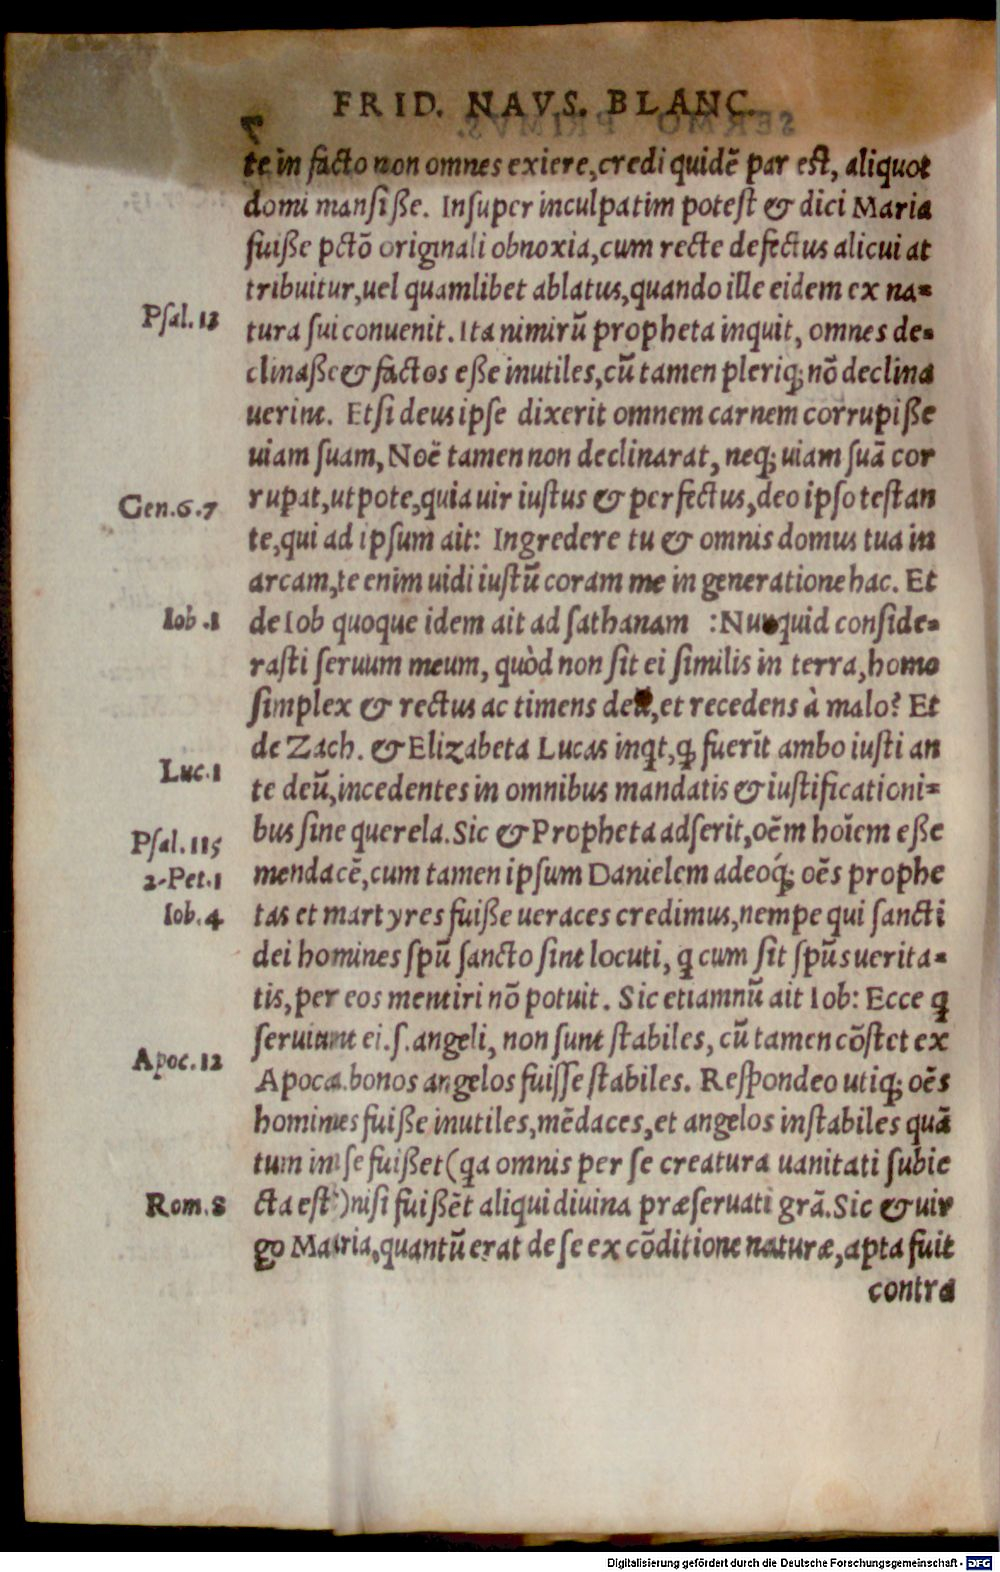 FRID. NAVS. BLANC.
te in facto non omnes exiere, credi quidē par est, aliquot
domi mansiße. Insuper inculpatim potest & dici Maria
fuiße pctō originali obnoxia, cum recte defectus alicui at
tribuitur, uel quamlibet ablatus, quando ille eidem ex na=
Psal. 13
tura sui conuenit. Ita nimirū propheta inquit, omnes de=
clinaße & factos eße inutiles, cū tamen pleriq; nō declina
uerint. Etsi deus ipse dixerit omnem carnem corrupiße
uiam suam, Noē tamen non declinarat, neq; uiam suā cor
Gen. 6. 7
rupat, utpote, quia uir iustus & perfectus, deo ipso testan
te, qui ad ipsum ait: Ingredere tu & omnis domus tua in
arcam, te enim uidi iustū coram me in generatione hac. Et
Iob. 1
de Iob quoque idem ait ad sathanam : Nunquid conside=
rasti seruum meum, quòd non sit ei similis in terra, homo
simplex & rectus ac timens deū, et recedens à malo? Et
de Zach. & Elizabeta Lucas inqt, ꝙ fuerīt ambo iusti an
Luc. 1
te deū, incedentes in omnibus mandatis & iustificationi=
bus sine querela. Sic & Propheta adserit, oēm hoīem eße
Psal. 115
mendacē, cum tamen ipsum Danielem adeoq́; oēs prophe
2. Pet. 1
tas et martyres fuiße ueraces credimus, nempe qui sancti
Iob. 4
dei homines spū sancto sint locuti, q cum sit spūs uerita=
tis, per eos mentiri nō potuit. Sic etiamnū ait Iob: Ecce q
seruiunt ei. s. angeli, non sunt stabiles, cū tamen cōstet ex
Apoc. 12
Apoca. bonos angelos fuisse stabiles. Respondeo utiq; oēs
homines fuiße inutiles, mēdaces, et angelos instabiles quā
tum in se fuißet (qa omnis per se creatura uanitati subie
Rom. 8
cta est) nisi fuißēt aliqui diuina præseruati grā. Sic & uir
go Maria, quantū erat de se ex cōditione naturæ, apta fuit
contra
Digitalisierung gefördert durch die Deutsche Forschungsgemeinschaft - DFG